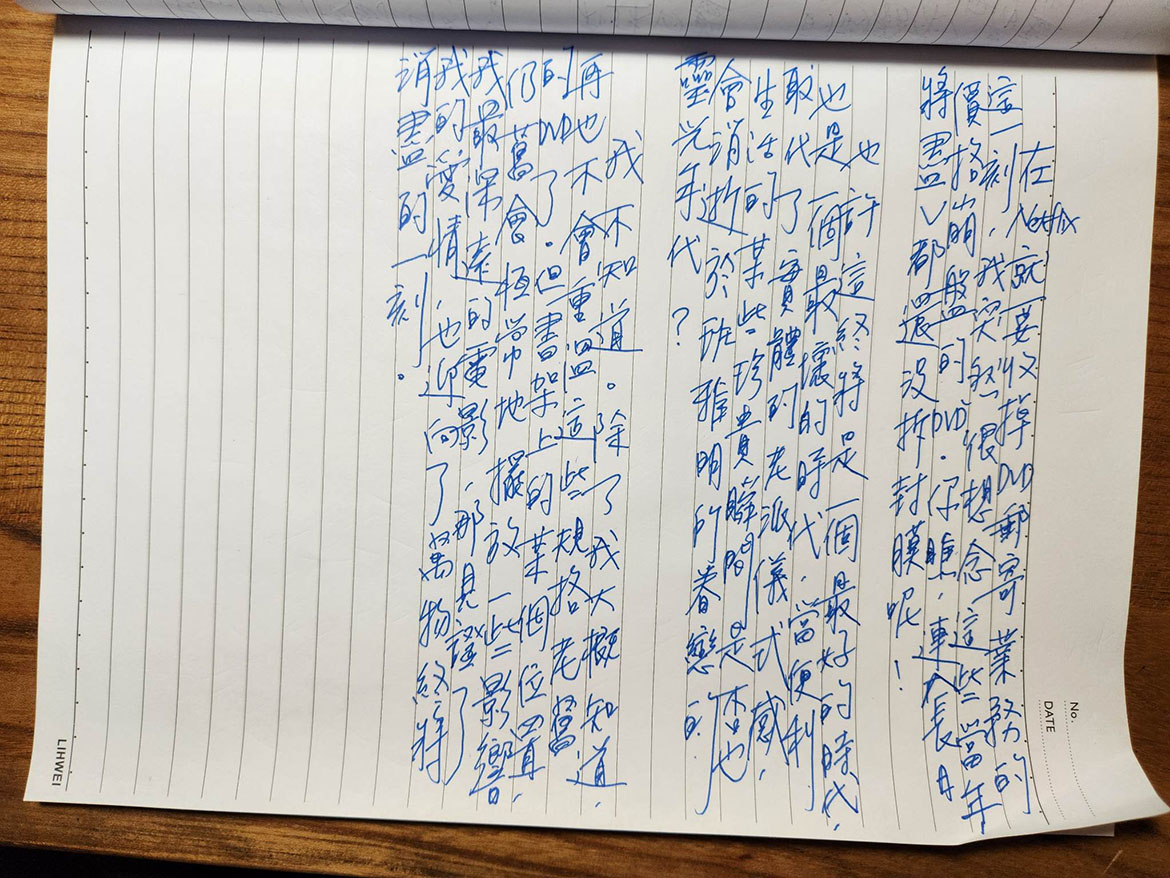 No.
DATE
在Netflix就要收掉DVD郵寄業務的
這一刻，我突然很想念這些當年
價格崩盤的DVD．你瞧，連《長日
將盡》都還沒拆封膜呢！
也許這終將是一個最好的時代，
也是一個最壞的時代．當便利
取代了實體的老派儀式感，
生活的某些珍貴瞬間是否也
會消逝於班雅明所眷戀的
靈光年代？
我不知道。除了我大概知道，
再也不會重溫這些規格老舊
的DVD了。但書架上的某個位置，
仍舊會恆常地擺放一些影響
我最深遠的電影，那見證了
我的愛情，也迎向了萬物終將
消盡的一刻。
LIHWEI